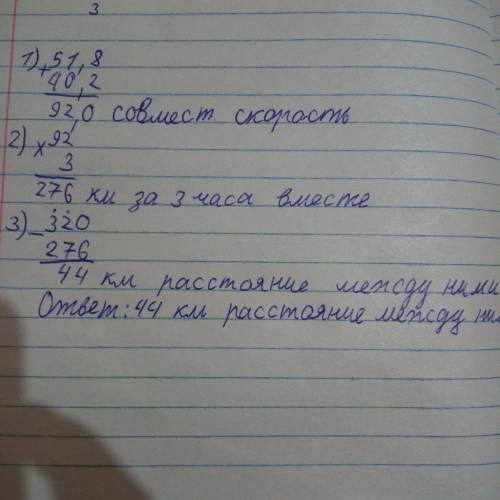 3
1) + 51,8
40,2
92,0 совмест. скорость
2) x 92
3
276 км за 3 часа вместе
3) - 320
276
44 км расстояние между ними
Ответ: 44 км расстояние между